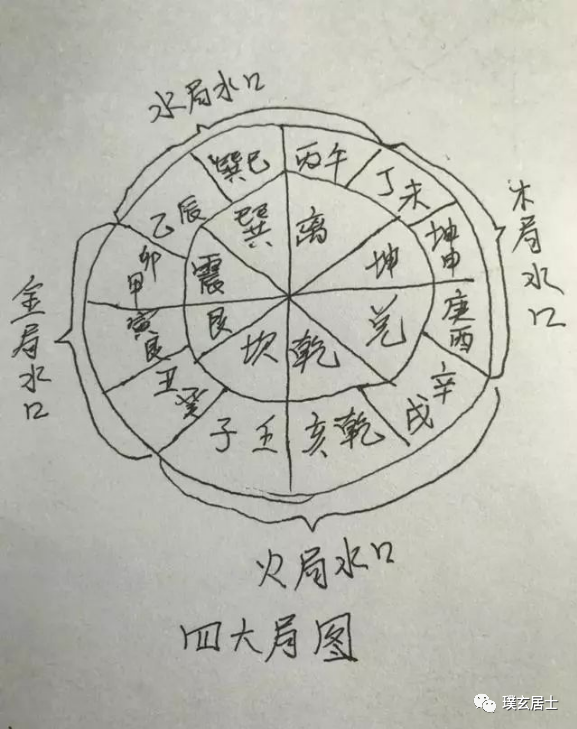 水局水口
巽巳
丙午
丁未
坤申
庚酉
辛戌
乾亥
壬子
癸丑
艮寅
甲卯
乙辰
巽
离
坤
兑
乾
坎
艮
震
木局水口
金局水口
火局水口
四大局图
璞玄居士